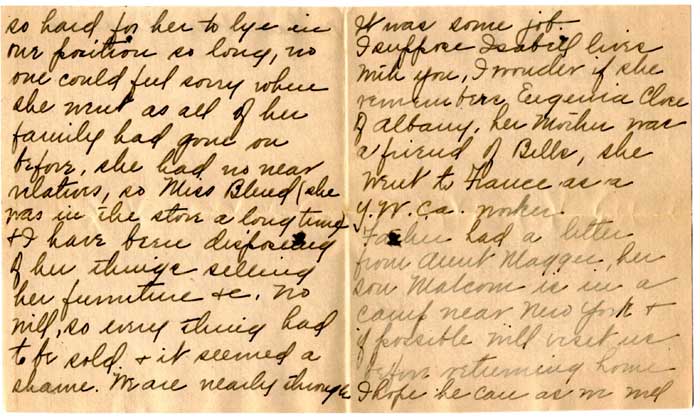 so hard for her to lye in
one position so long, no
one could feel sorry when
she went as all of her
family had gone on
before, she had no near
relations, so Miss Bleed (she
was in the store a long time)
& I have been disposing
of her things selling
her furniture &c. no
will, so every thing had
to be sold & it seemed a
shame. We are nearly through
It was some job.
I suppose Isabell lives
with you, I wonder if she
remembers Eugenia Close
of Albany, her Mother was
a friend of Bells, she
went to France as a
Y.W.C.a. worker.
Father had a letter
from Aunt Maggie, her
son Malcom is in a
camp near New York &
if possible will visit us
before returning home
I hope he can as we will